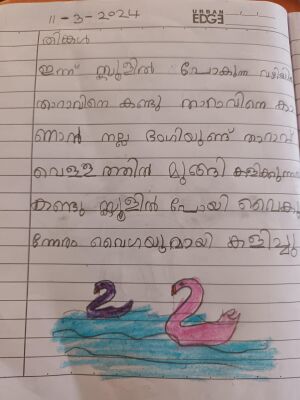 11-3-2024
URBAN
EDGE
തിങ്കൾ
ഇന്ന് സ്കൂളിൽ പോകുന്ന വഴിയിൽ
താറാവിനെ കണ്ടു താറാവിനെ കാ
ണാൻ നല്ല ഭംഗിയുണ്ട് താറാവ്
വെള്ളത്തിൽ മുങ്ങി കളിക്കുന്നത്
കണ്ടു സ്കൂളിൽ പോയി വൈകു
ന്നേരം വൈഗയുമായി കളിച്ചു